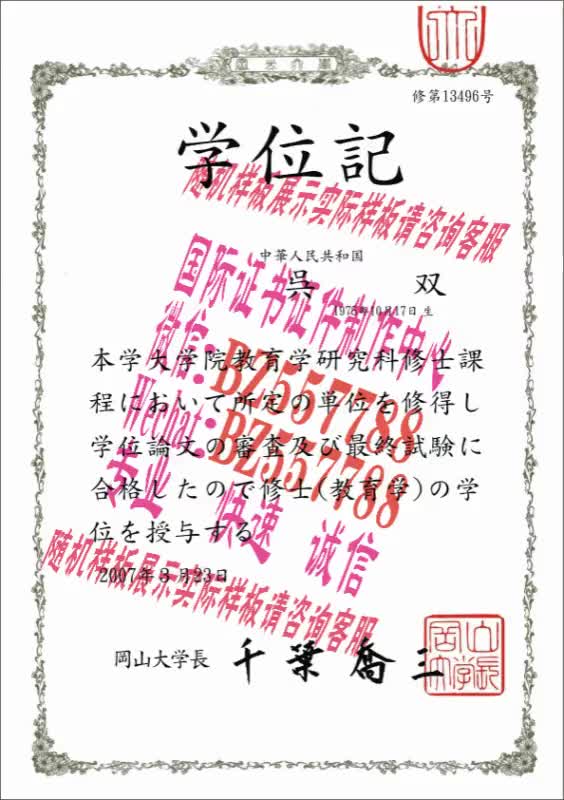 岡山大学
修第13496号
学位記
随机样板展示实际样板请咨询客服
中華人民共和国
呉 双
1976年10月17日 生
国际证书证件制作中心
微信:BZ557788
Wechat:BZ557788
本学大学院教育学研究科修士課
程において所定の単位を修得し
学位論文の審査及び最終試験に
合格したので修士(教育学)の学
位を授与する
专业 快速 诚信
2007年3月23日
随机样板展示实际样板请咨询客服
岡山大学長 千葉喬三
岡山大学長